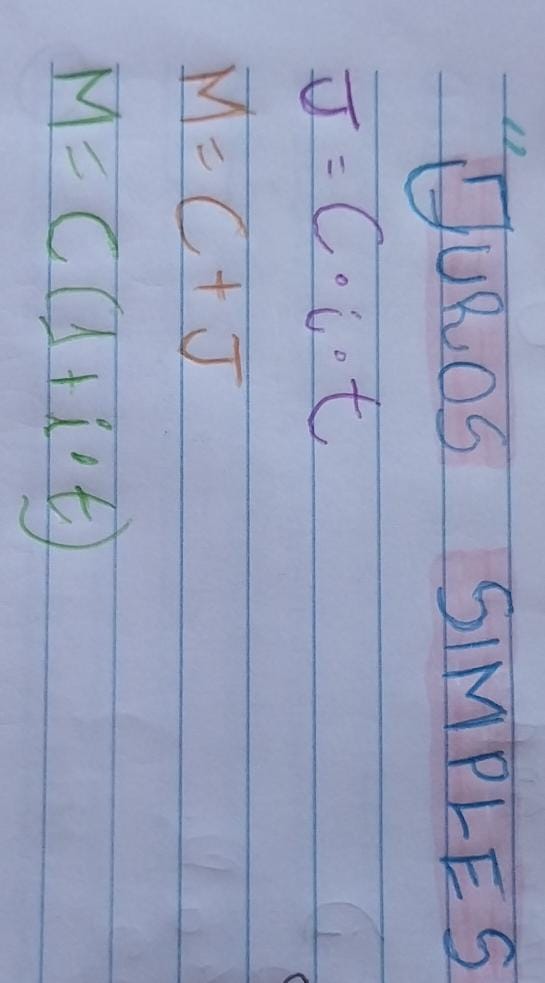 "JUROS SIMPLES
J = C · i · t
M = C + J
M = C (1 + i · t)